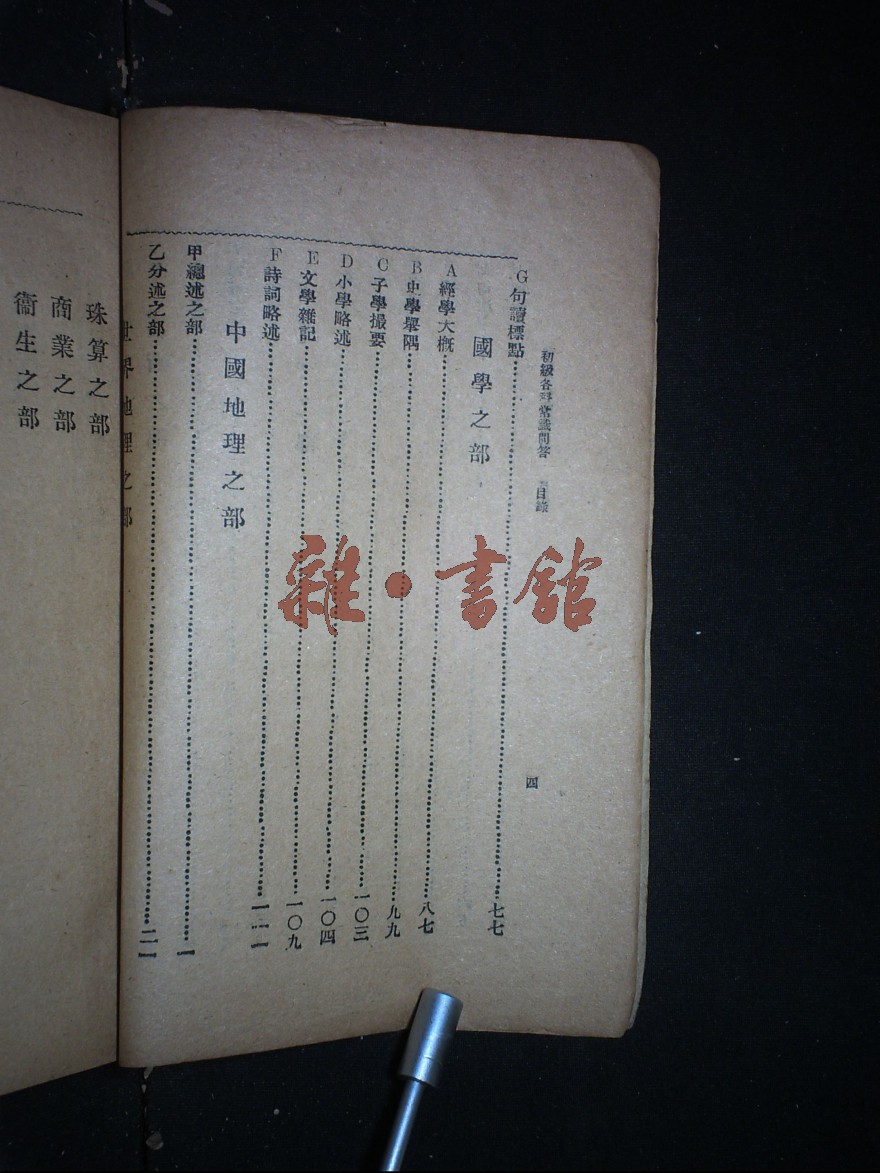 初級各科常識問答　目錄
四
G句讀標點……七七
國學之部
A經學大概……八七
B史學舉隅……九九
C子學撮要……一〇三
D小學略述……一〇四
E文學雜記……一〇九
F詩詞略述……一二一
中國地理之部
甲總述之部……一
乙分述之部……二一
世界地理之部
珠算之部
商業之部
衞生之部
雜·書館